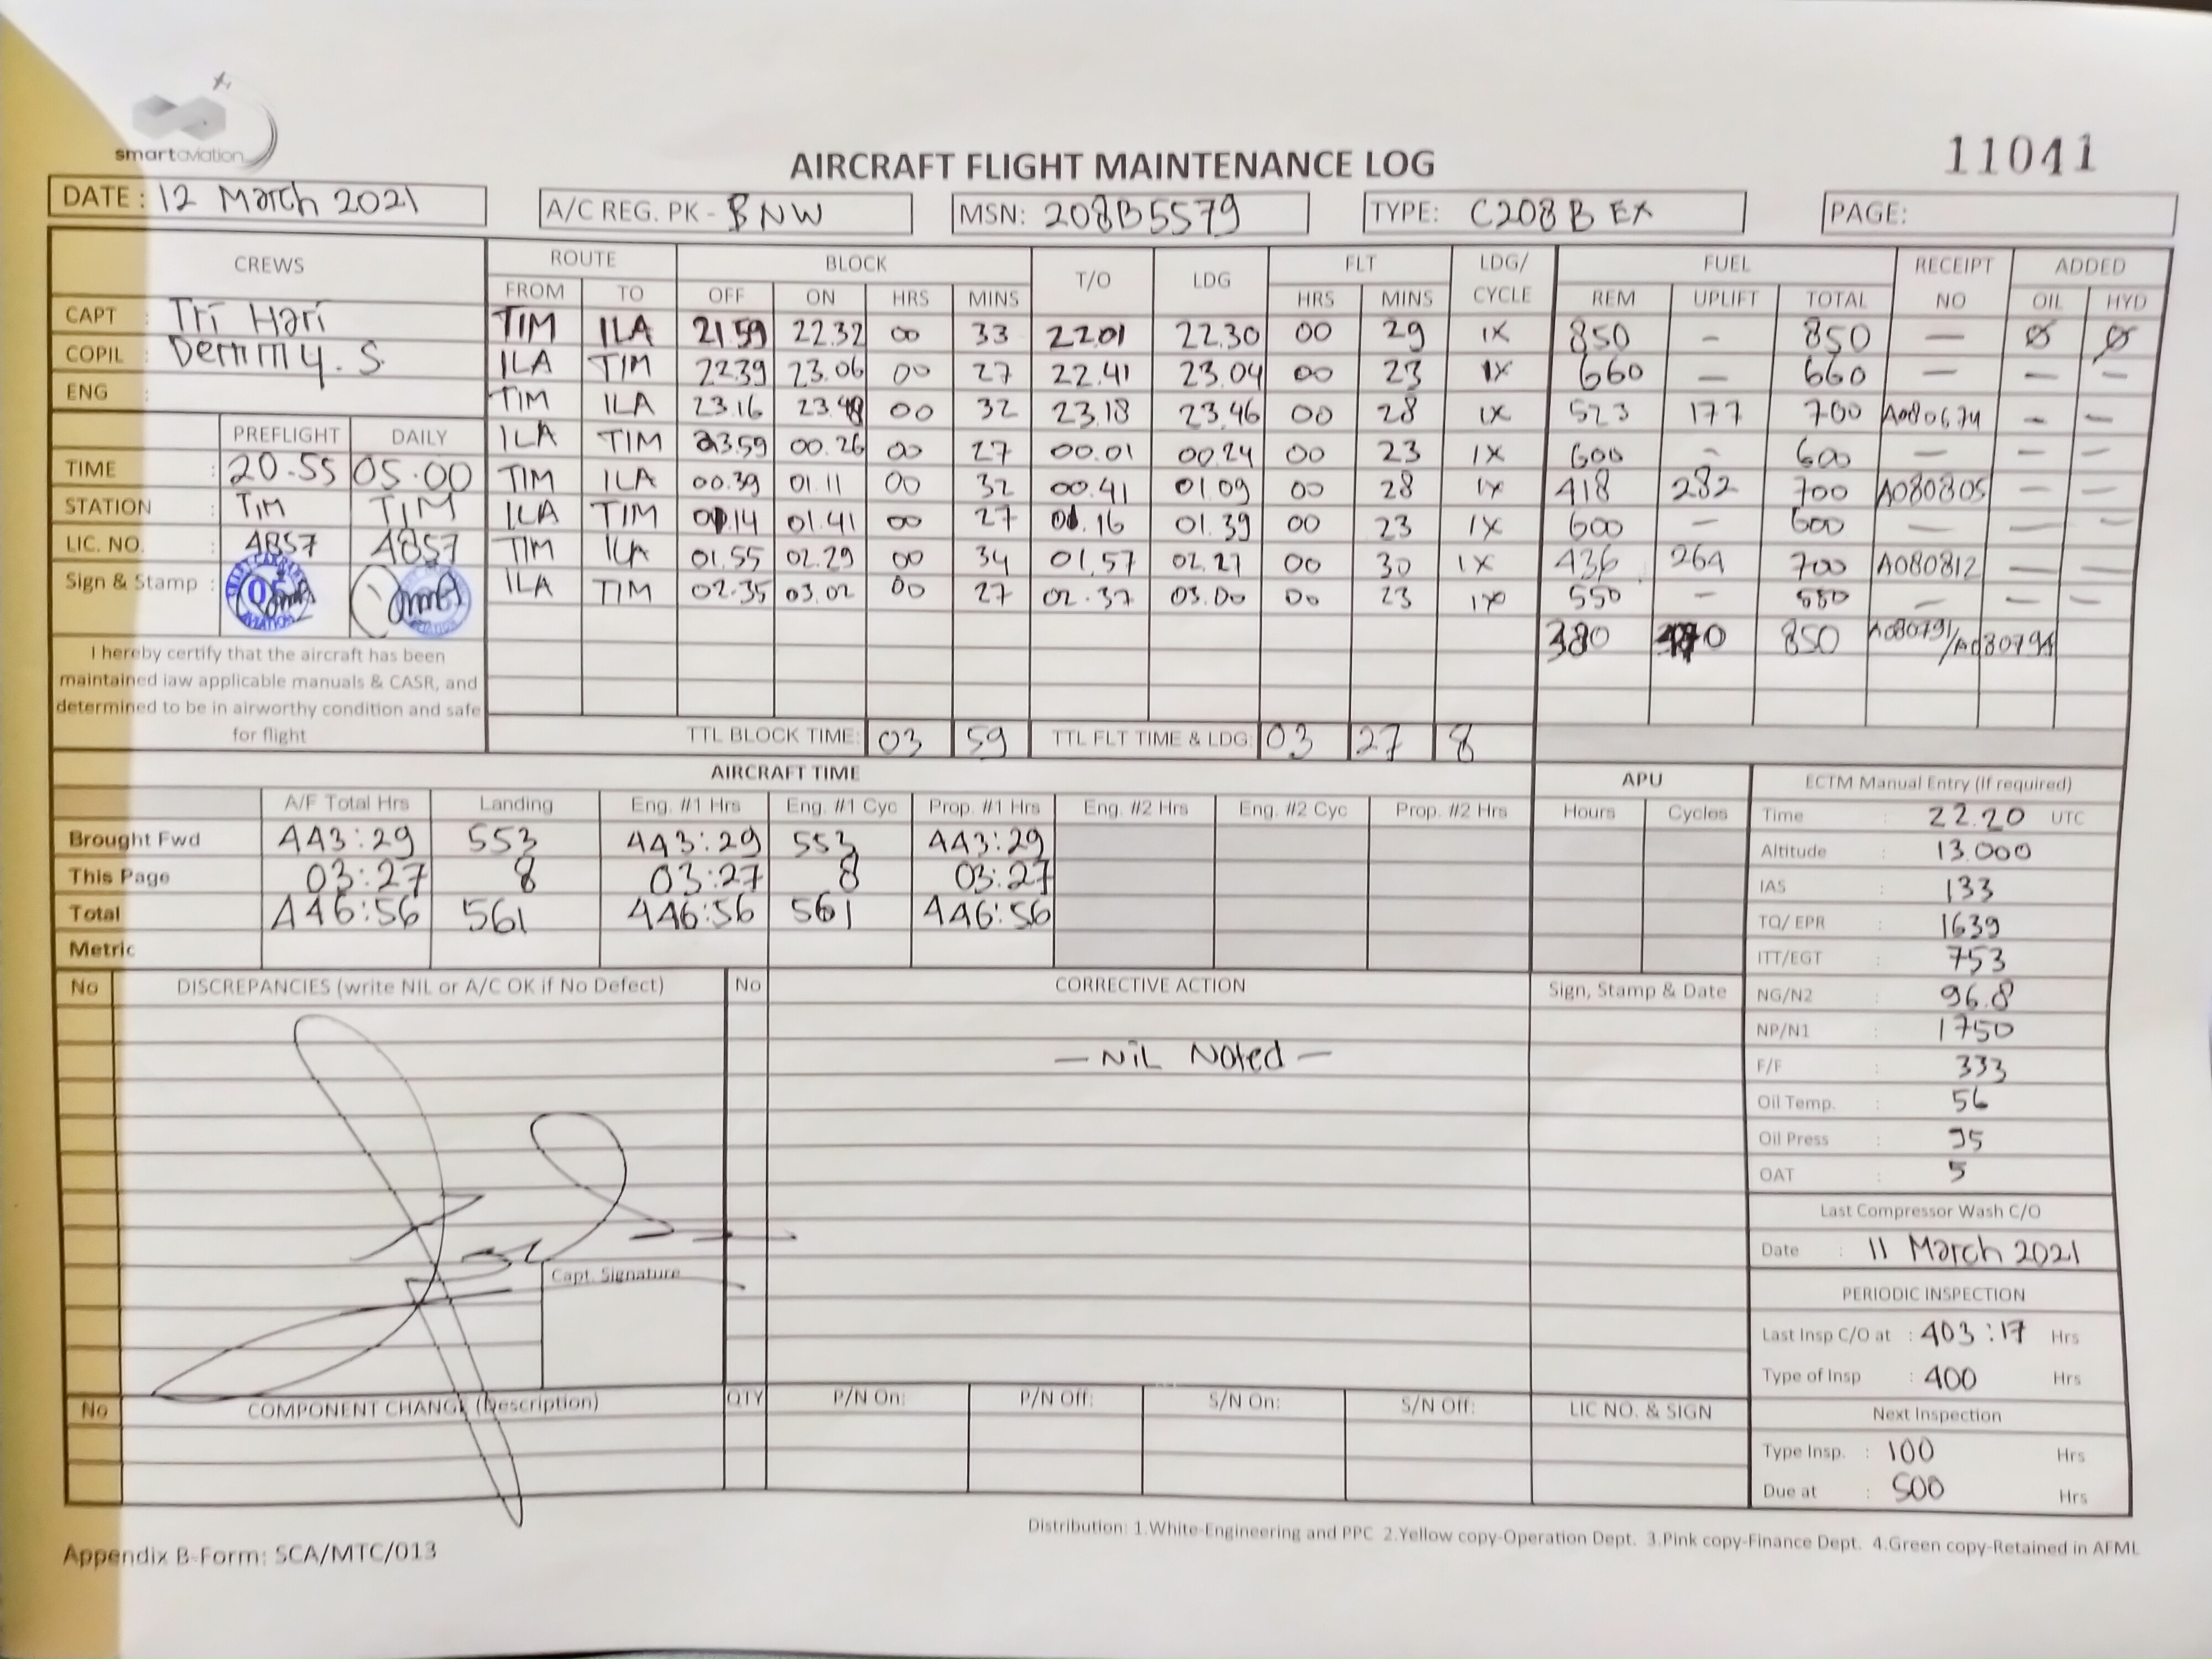 smartaviation
AIRCRAFT FLIGHT MAINTENANCE LOG
11041
DATE : 12 March 2021
A/C REG. PK - BNW
MSN: 208B5579
TYPE: C208 B EX
PAGE:
CREWS ROUTE BLOCK T/O LDG FLT LDG/ CYCLE FUEL RECEIPT NO ADDED
FROM TO OFF ON HRS MINS HRS MINS REM UPLIFT TOTAL OIL HYD
CAPT : Tri Hari
COPIL : Demmy. S
ENG :
TIM ILA 21.59 22.32 00 33 22.01 22.30 00 29 1X 850 - 850 — Ø Ø
ILA TIM 22.39 23.06 00 27 22.41 23.04 00 23 1X 660 — 660 — — —
TIM ILA 23.16 23.48 00 32 23.18 23.46 00 28 1X 523 177 700 A080674 — —
ILA TIM 23.59 00.26 00 27 00.01 00.24 00 23 1X 600 - 600 — — —
TIM ILA 00.39 01.11 00 32 00.41 01.09 00 28 1X 418 282 700 A080805 — —
ILA TIM 01.14 01.41 00 27 01.16 01.39 00 23 1X 600 — 600 — — —
TIM ILA 01.55 02.29 00 34 01.57 02.27 00 30 1X 436 264 700 A080812 — —
ILA TIM 02.35 03.02 00 27 02.37 03.00 00 23 1X 550 - 550 — — —
380 470 850 A080791/A080794
PREFLIGHT DAILY
TIME : 20.55 05.00
STATION : TIM TIM
LIC. NO. : 4857 4857
Sign & Stamp :
AVIATION
I hereby certify that the aircraft has been
maintained iaw applicable manuals & CASR, and
determined to be in airworthy condition and safe
for flight
TTL BLOCK TIME: 03 59 TTL FLT TIME & LDG: 03 27 8
AIRCRAFT TIME
A/F Total Hrs Landing Eng. #1 Hrs Eng. #1 Cyc Prop. #1 Hrs Eng. #2 Hrs Eng. #2 Cyc Prop. #2 Hrs
Brought Fwd 443:29 553 443:29 553 443:29
This Page 03:27 8 03:27 8 03:27
Total 446:56 561 446:56 561 446:56
Metric
APU
Hours Cycles
ECTM Manual Entry (If required)
Time : 22.20 UTC
Altitude : 13.000
IAS : 133
TQ/ EPR : 1639
ITT/EGT : 753
NG/N2 : 96.8
NP/N1 : 1750
F/F : 333
Oil Temp. : 56
Oil Press : 95
OAT : 5
Last Compressor Wash C/O
Date : 11 March 2021
PERIODIC INSPECTION
Last Insp C/O at : 403:17 Hrs
Type of Insp : 400 Hrs
Next Inspection
Type Insp. : 100 Hrs
Due at : 500 Hrs
No DISCREPANCIES (write NIL or A/C OK if No Defect) No CORRECTIVE ACTION Sign, Stamp & Date
— NiL Noted —
Capt. Signature
No COMPONENT CHANGE (Description) QTY P/N On: P/N Off: S/N On: S/N Off: LIC NO. & SIGN
Distribution: 1.White-Engineering and PPC 2.Yellow copy-Operation Dept. 3.Pink copy-Finance Dept. 4.Green copy-Retained in AFML
Appendix B-Form: SCA/MTC/013